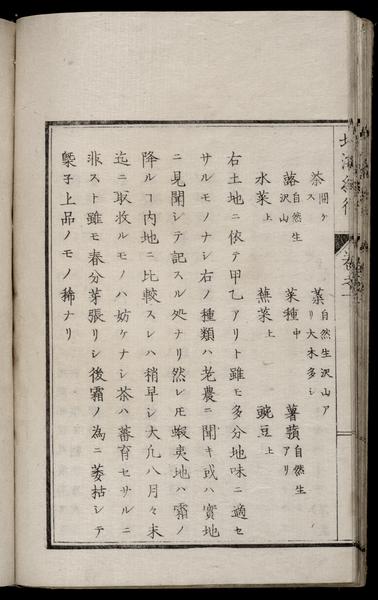 茶 開ケス 藁 自然生沢山アリ大木多シ
蕗 自然生沢山 菜種 中 薯蕷 自然生アリ
水菜 上 蕪菜 上 豌豆 上
右土地ニ依テ甲乙アリト雖モ多分地味ニ適セ
サルモノナシ右ノ種類ハ老農ニ聞キ或ハ實地
ニ見聞シテ記スル処ナリ然レ𪜈蝦夷地ハ霜ノ
降ルヿ内地ニ比較スレハ稍早シ大凢八月々末
迄ニ取收ルモノハ妨ケナシ茶ハ蕃育セサルニ
非スト雖モ春分芽張リシ後霜ノ為ニ萎枯シテ
櫱子上品ノモノ稀ナリ